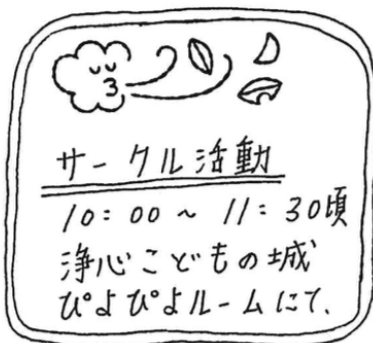 サークル活動
10:00~11:30頃
浄心こどもの城
ぴよぴよルームにて、